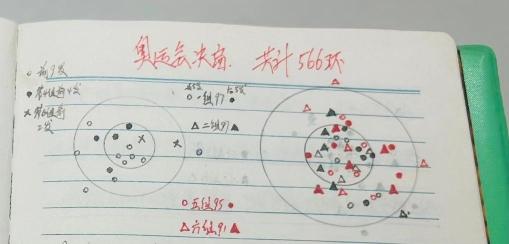 奥运会决赛 共计566环
○ 前9发
● 第4组前4发
× 第6组前
2发
前5发 后5发
○ 一组97 ●
△ 二组97 ▲
○ 五组95 ●
△ 六组91 ▲